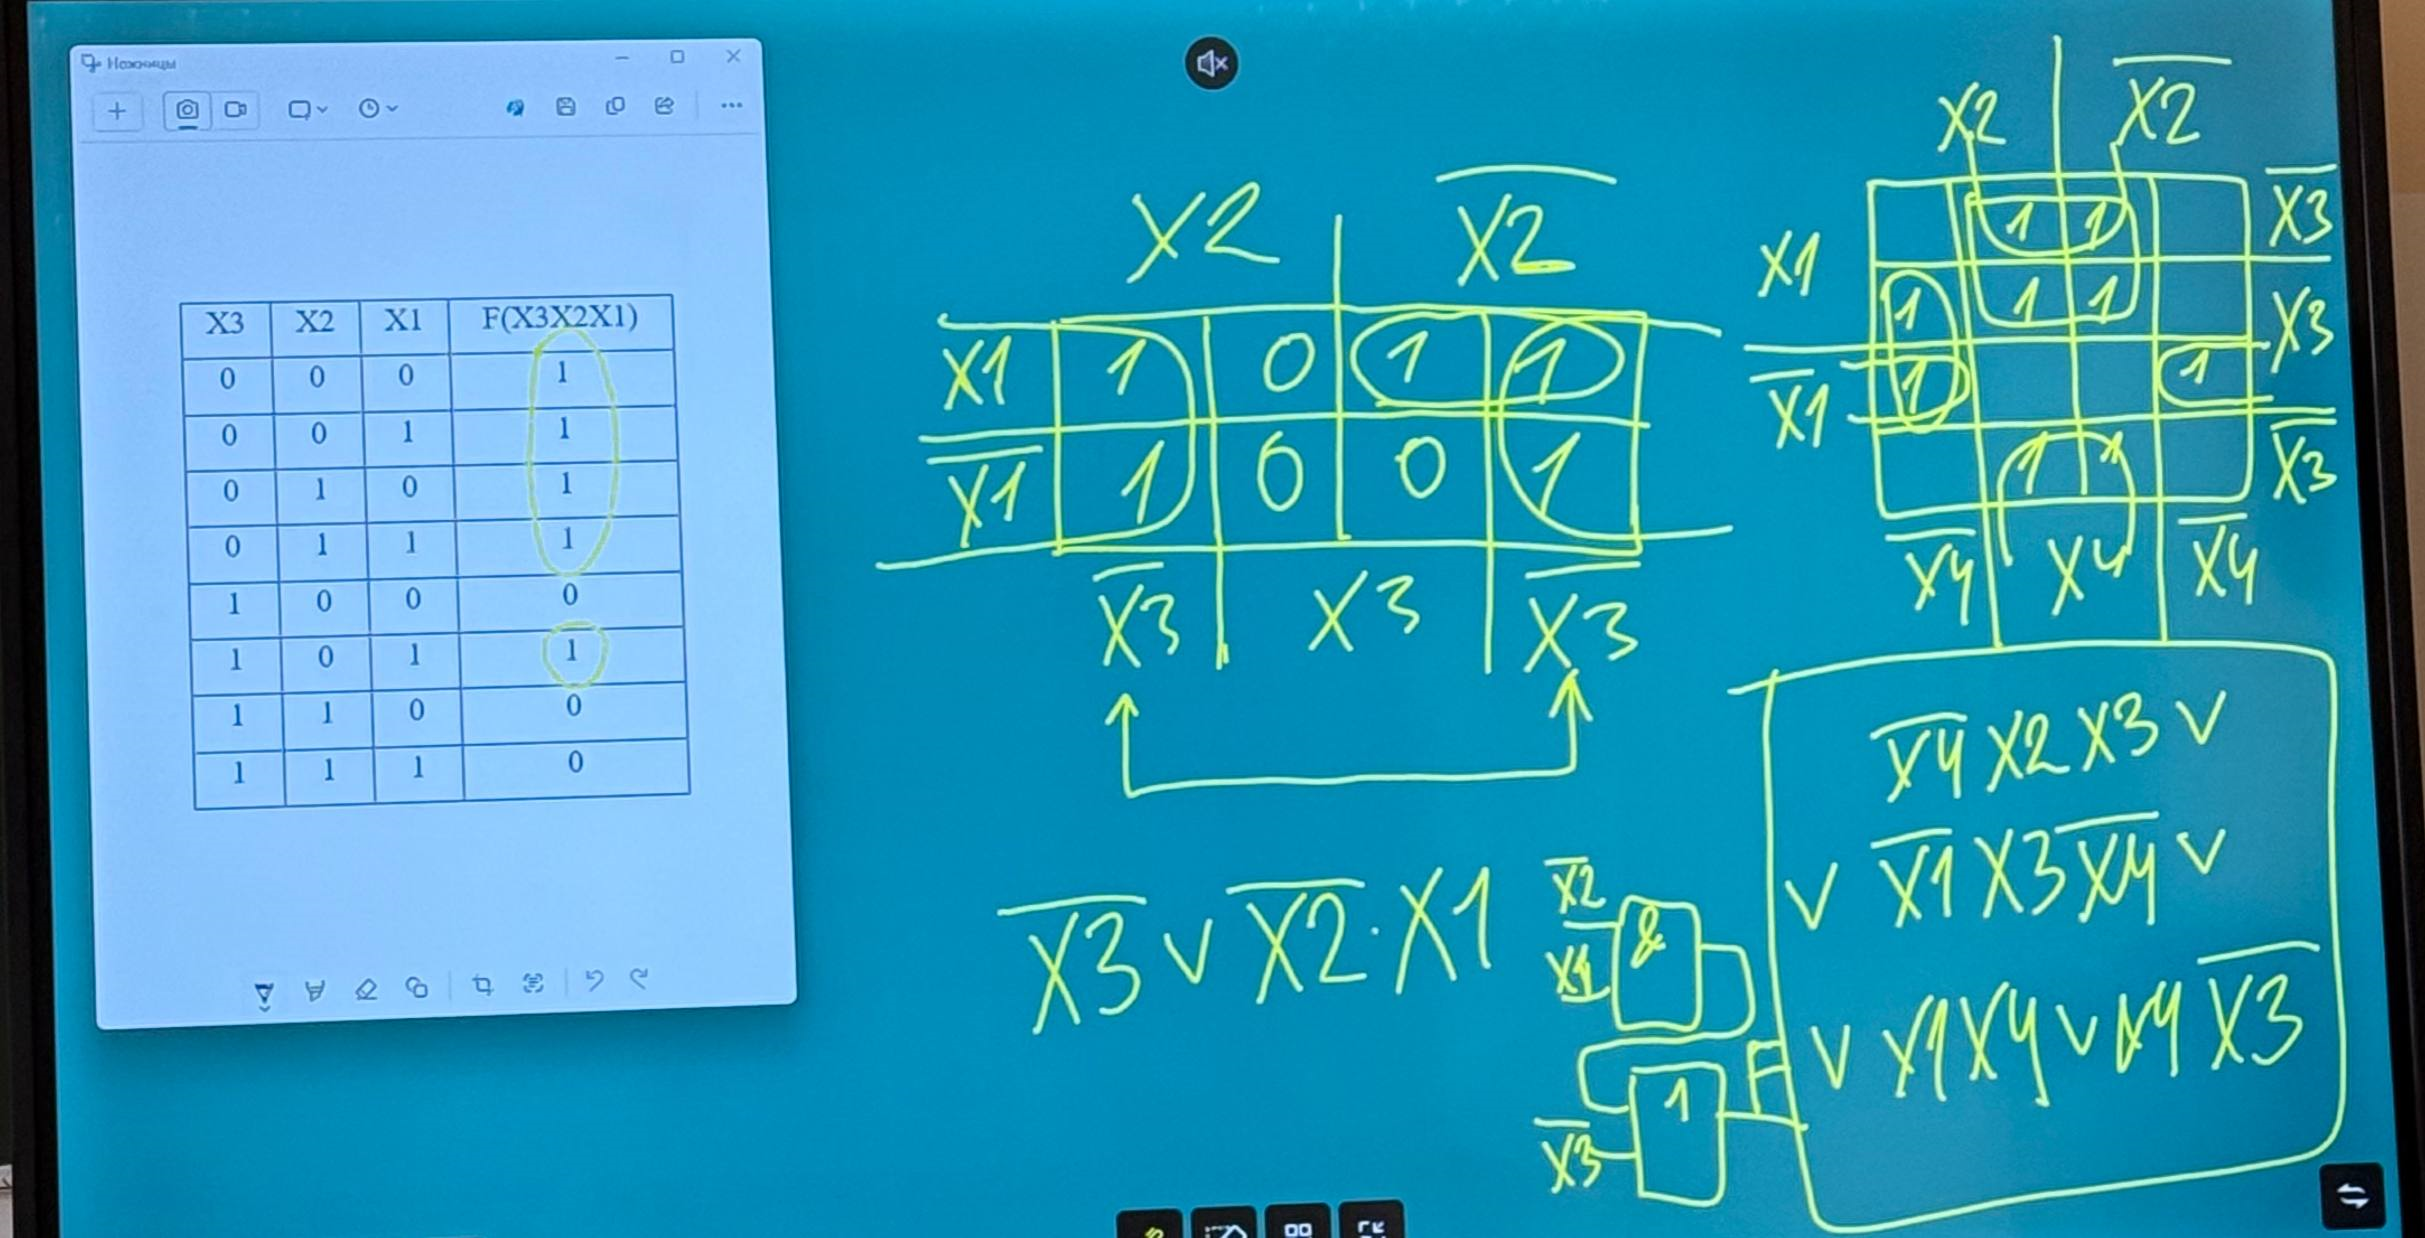 Ножницы
X3 X2 X1 F(X3X2X1)
0 0 0 1
0 0 1 1
0 1 0 1
0 1 1 1
1 0 0 0
1 0 1 1
1 1 0 0
1 1 1 0
X2 X̅2̅
X1 1 0 1 1
X̅1̅ 1 0 0 1
X̅3̅ X3 X̅3̅
X̅3̅ ∨ X̅2̅ · X1
X̅2̅
X1
&
1
X̅3̅
F
X2 X̅2̅
1 1 X̅3̅
X1
1 1 1 X3
X̅1̅ 1 1 X3
1 1 X̅3̅
X̅4̅ X4 X̅4̅
X̅4̅ X2 X3 ∨
∨ X̅1̅ X3 X̅4̅ ∨
∨ X1 X4 ∨ X4 X̅3̅